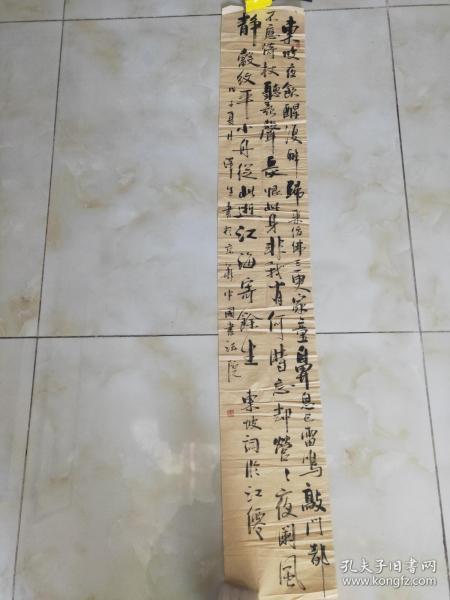 東坡夜飲醒復醉歸來仿佛三更家童鼻息已雷鳴敲門都
不應倚杖聽江聲長恨此身非我有何時忘却營々夜闌風
靜縠紋平小舟從此逝江海寄餘生 東坡詞臨江僊
戊子夏月 澤生書於京華中國書法院
孔夫子旧书网
book.kongfz.com